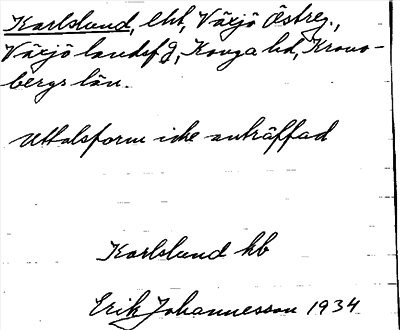 Karlslund, lht, Växjö Östreg.,
Växjö landsfg, Konga hd, Krono-
bergs län.
Uttalsform icke anträffad
Karlslund kb
Erik Johannesson 1934